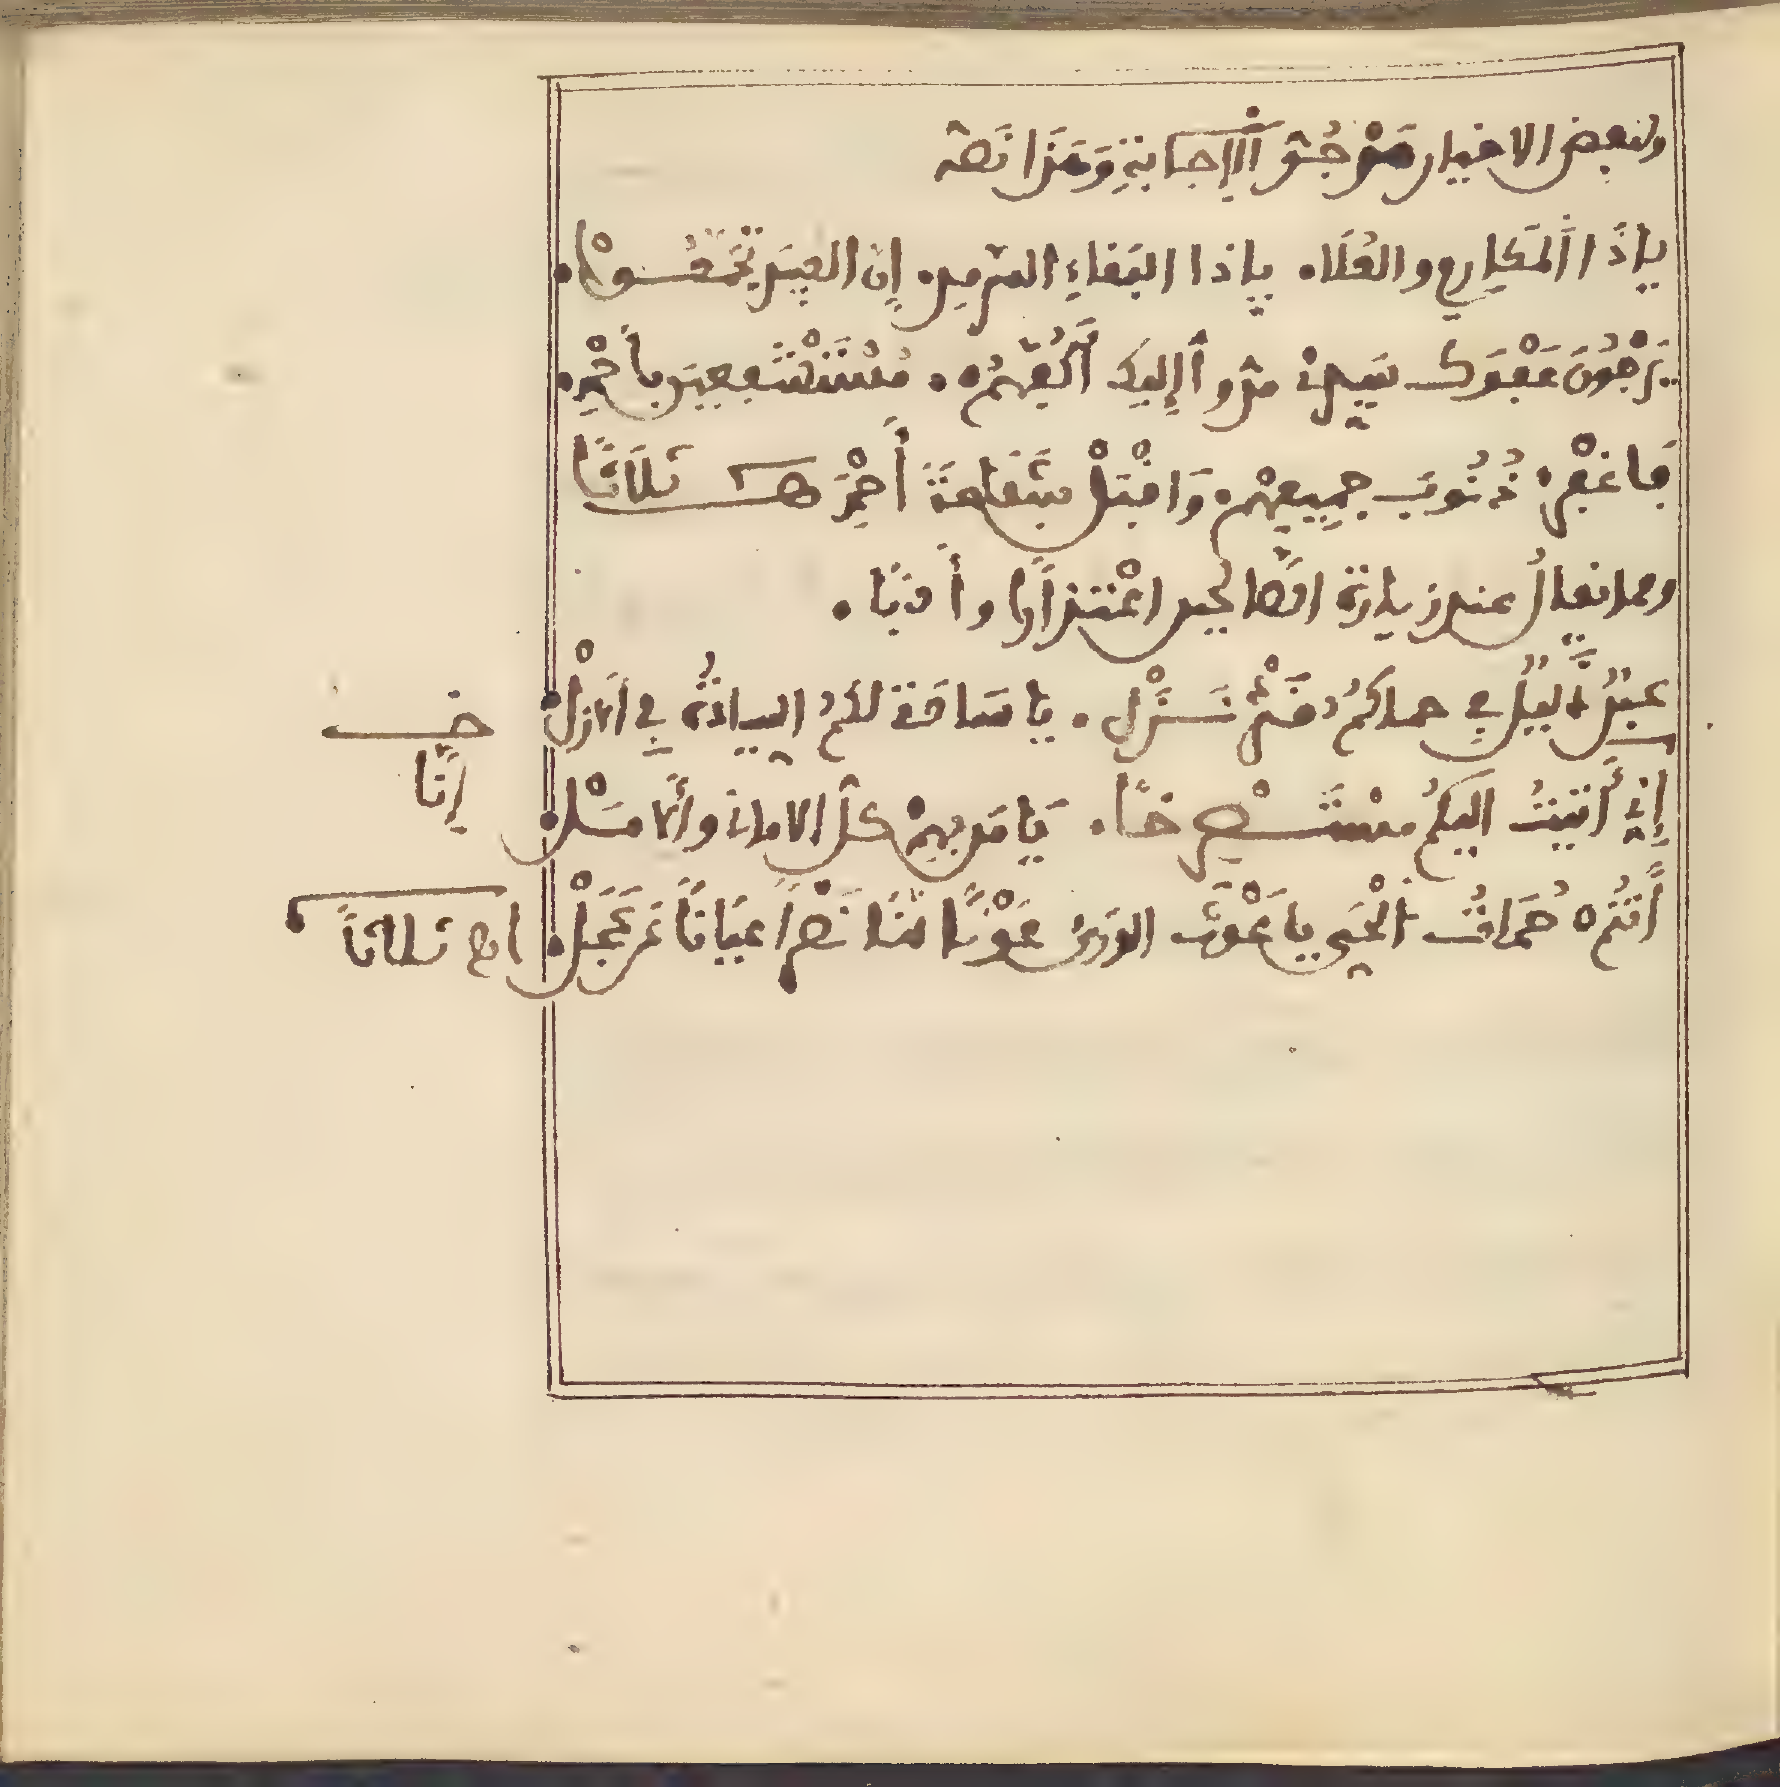 ولبعض الاخيار مَوْجُودُ الْإِجَابَةِ وَهَذَا نَصُّهُ
يَاذَا الْمَكَارِمِ والعُلَا يا ذا البَقاءِ السرمد إن العبيد تجمعوا
يَرْجُونَ عَفْوَكَ سَيِّدِي مدوا إليك أكفهم مُسْتَشْفِعِينَ بأحمد
فَاغفِرْ ذُنُوبَ جَمِيعِهِمْ وَاقْبَلْ شَفَاعَةَ أَحْمَدَ ثَلَاثًا
ومما يقالُ عند زيارة الصَّالحين اعْتذارًا وأدبًا
عبيدكم في حماكمُ قد نزل يا سادة لكم السيادة في الازل
إني أتيتُ اليكمُ مستصرخًا يَا من بهم كل الاماني والامل
أَنْتُمْ حُمَاةُ الْحَيِّ يا غَوْثَ الورى غَوْثًا لنَا نَصْرًا عِيَانًا عَن عَجَلْ اهـ ثلاثًا
خـ
إنَّا